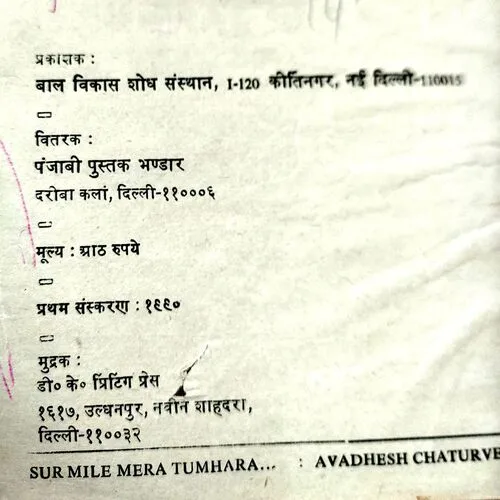 प्रकाशक :
बाल विकास शोध संस्थान, I-120 कीर्तिनगर, नई दिल्ली-110015
वितरक :
पंजाबी पुस्तक भण्डार
दरीबा कलां, दिल्ली-११०००६
मूल्य : आठ रुपये
प्रथम संस्करण : १९९०
मुद्रक :
डी० के० प्रिंटिंग प्रेस
१६१७, उल्धनपुर, नवीन शाहदरा,
दिल्ली-११००३२
SUR MILE MERA TUMHARA... : AVADHESH CHATURVE